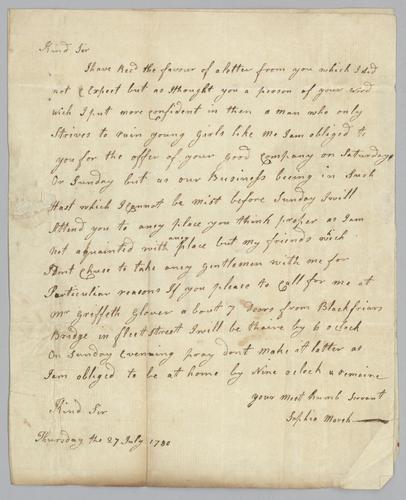 Kind Sir
I have Recd the favour of a letter from you which I did
not Expect but as I thought you a person of your word
wich I put more Confident in then a man who only
Strives to ruin young girls like me I am obliged to
you for the offer of your good Company on Saturday
Or Sunday but as our Business being in Such
Hast which I Cannot be mist before Sunday I will
Attend you to aney place you think proper as I am
not aquainted with aney place but my friends wich
I dont Chuse to take aney gentleman with me for
Particulier reasons If you please to Call for me at
Mr Greffeth Glover a bout 7 Doors from Blackfriars
Bridge in fleet Street I will be thaire by 6 oclock
On Sunday Evenning pray dont make it latter as
I am obliged to be at home by Nine oclock & remaine
your most Humb Servant
Kind Sir
Sophia March
Thursday the 27 July 1780